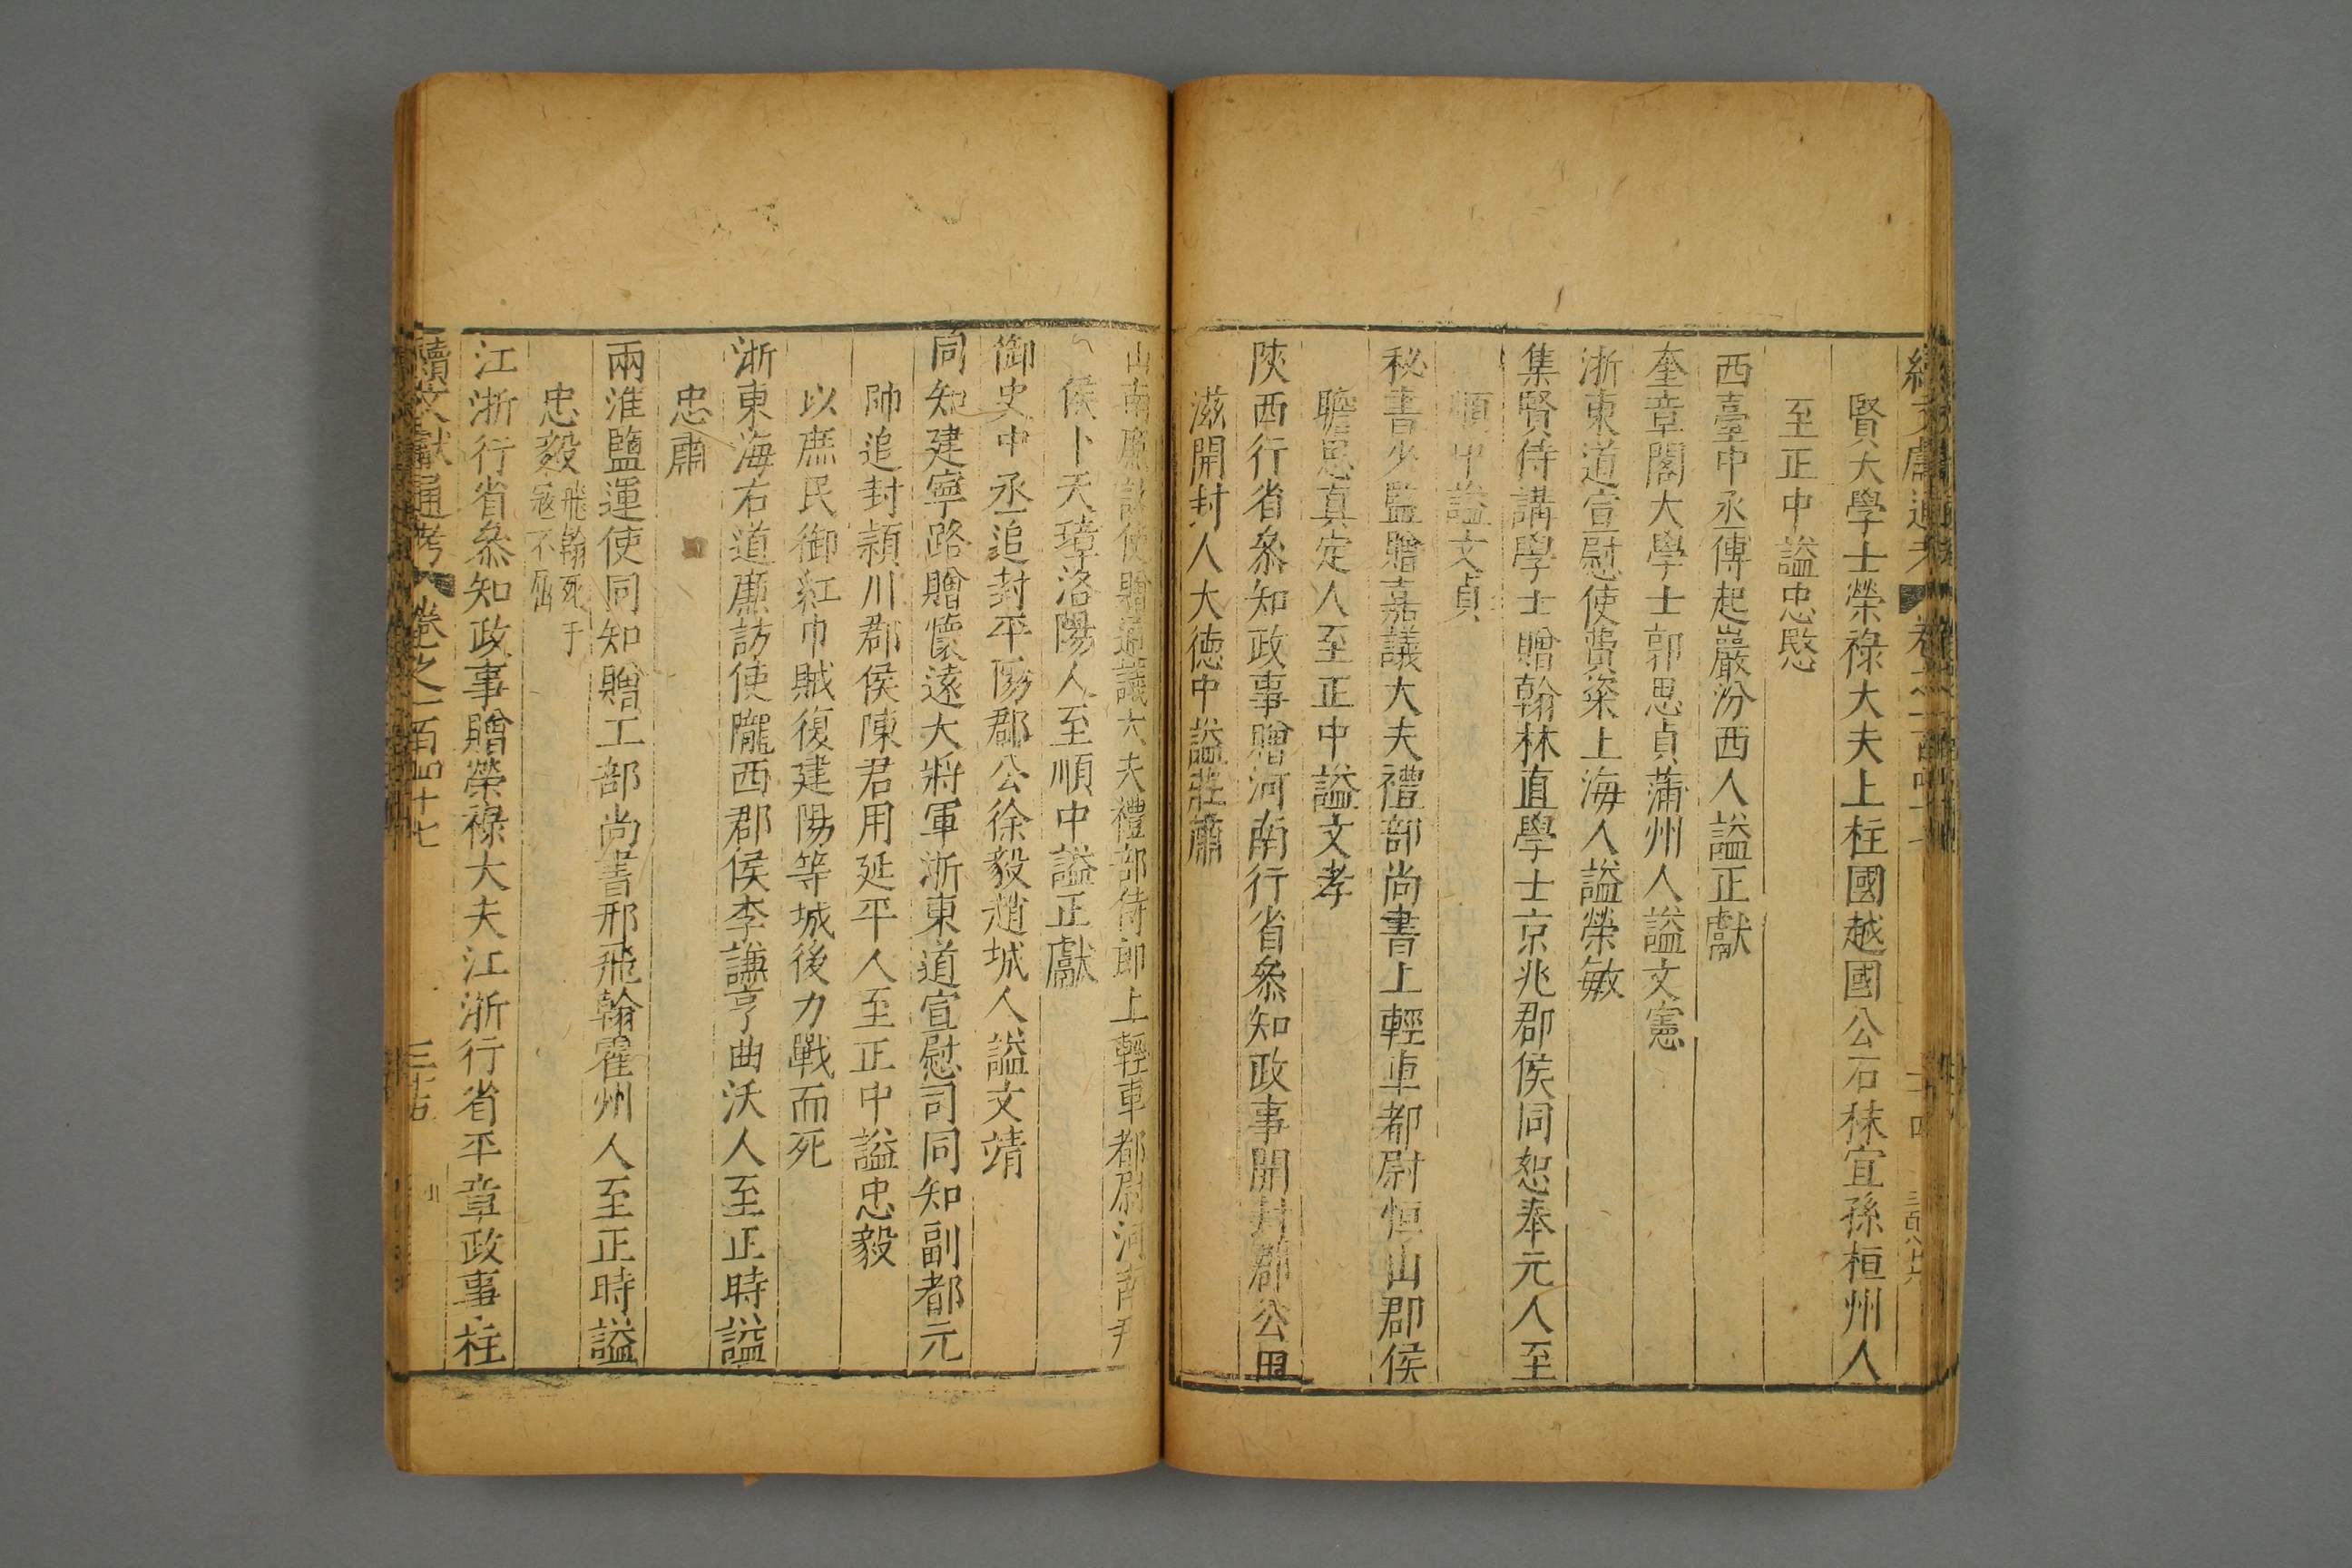 賢大學士榮祿大夫上柱國越國公石秣宜孫桓州人
至正中謚忠愍
西臺中丞傅起巖汾西人謚正獻
奎章閣大學士郭思貞蒲州人謚文憲
浙東道宣慰使費寀上海人謚榮敏
集賢侍講學士贈翰林直學士京兆郡侯同恕奉元人至
順中謚文貞
秘書少監贈嘉議大夫禮部尚書上輕車都尉恒山郡侯
瞻思真定人至正中謚文孝
陜西行省叅知政事贈河南行省叅知政事開封郡公田
滋開封人大德中謚莊肅
山南廉訪使贈通議大夫禮部侍郎上輕車都尉河南尹
侯卜天璋洛陽人至順中謚正獻
御史中丞追封平陽郡公徐毅趙城人謚文靖
同知建寧路贈懷遠大將軍浙東道宣慰司同知副都元
帥追封潁川郡侯陳君用延平人至正中謚忠毅
以庶民御紅巾賊復建陽等城後力戰而死
浙東海右道廉訪使隴西郡侯李謙亨曲沃人至正時謚
忠肅
兩淮鹽運使同知贈工部尚書邢飛翰霍州人至正時謚
忠毅 飛翰死于
寇不屈
江浙行省叅知政事贈榮祿大夫江浙行省平章政事柱
續文獻通考 卷之一百四十七